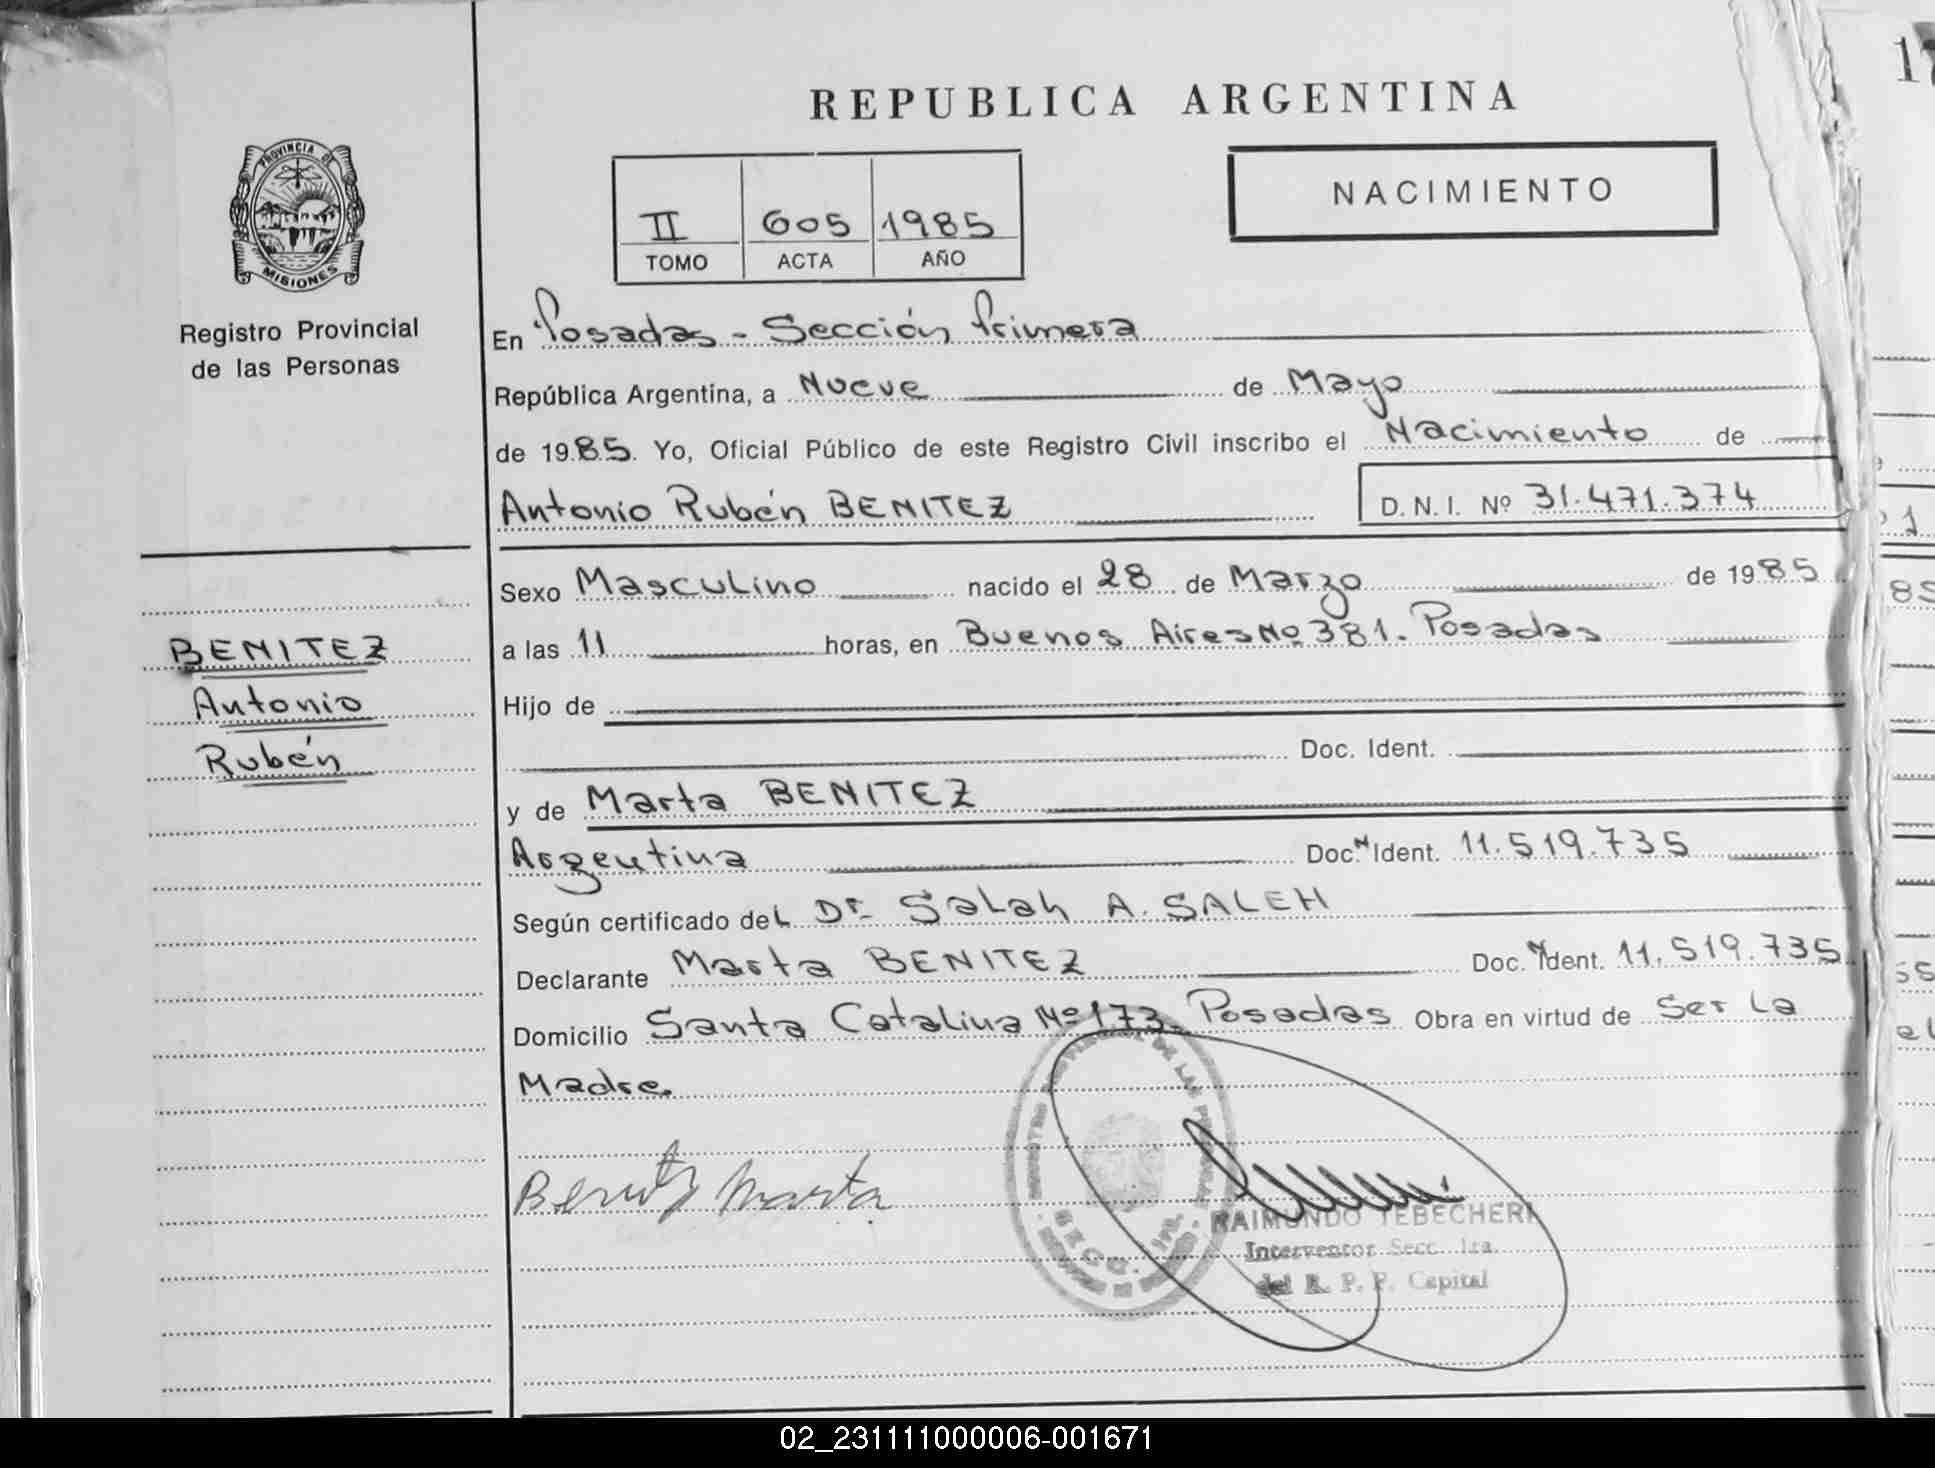 REPUBLICA ARGENTINA
PROVINCIA DE
MISIONES
Registro Provincial
de las Personas
II 605 1985
TOMO ACTA AÑO
NACIMIENTO
En Posadas - Sección Primera
República Argentina, a Nueve de Mayo
de 1985. Yo, Oficial Público de este Registro Civil inscribo el Nacimiento de
Antonio Rubén BENITEZ D.N.I. Nº 31.471.374
BENITEZ
Antonio
Rubén
Sexo Masculino nacido el 28 de Marzo de 1985
a las 11 horas, en Buenos Aires Nº 381. Posadas
Hijo de
Doc. Ident.
y de Marta BENITEZ
Argentina Doc. N Ident. 11.519.735
Según certificado del Dr. Salah A. SALEH
Declarante Marta BENITEZ Doc. N Ident. 11.519.735
Domicilio Santa Catalina Nº 173. Posadas Obra en virtud de Ser la
Madre.
Benitez Marta
RAIMUNDO TEBECHERI
Interventor Secc. 1ra.
del R. P. P. Capital
02_231111000006-001671